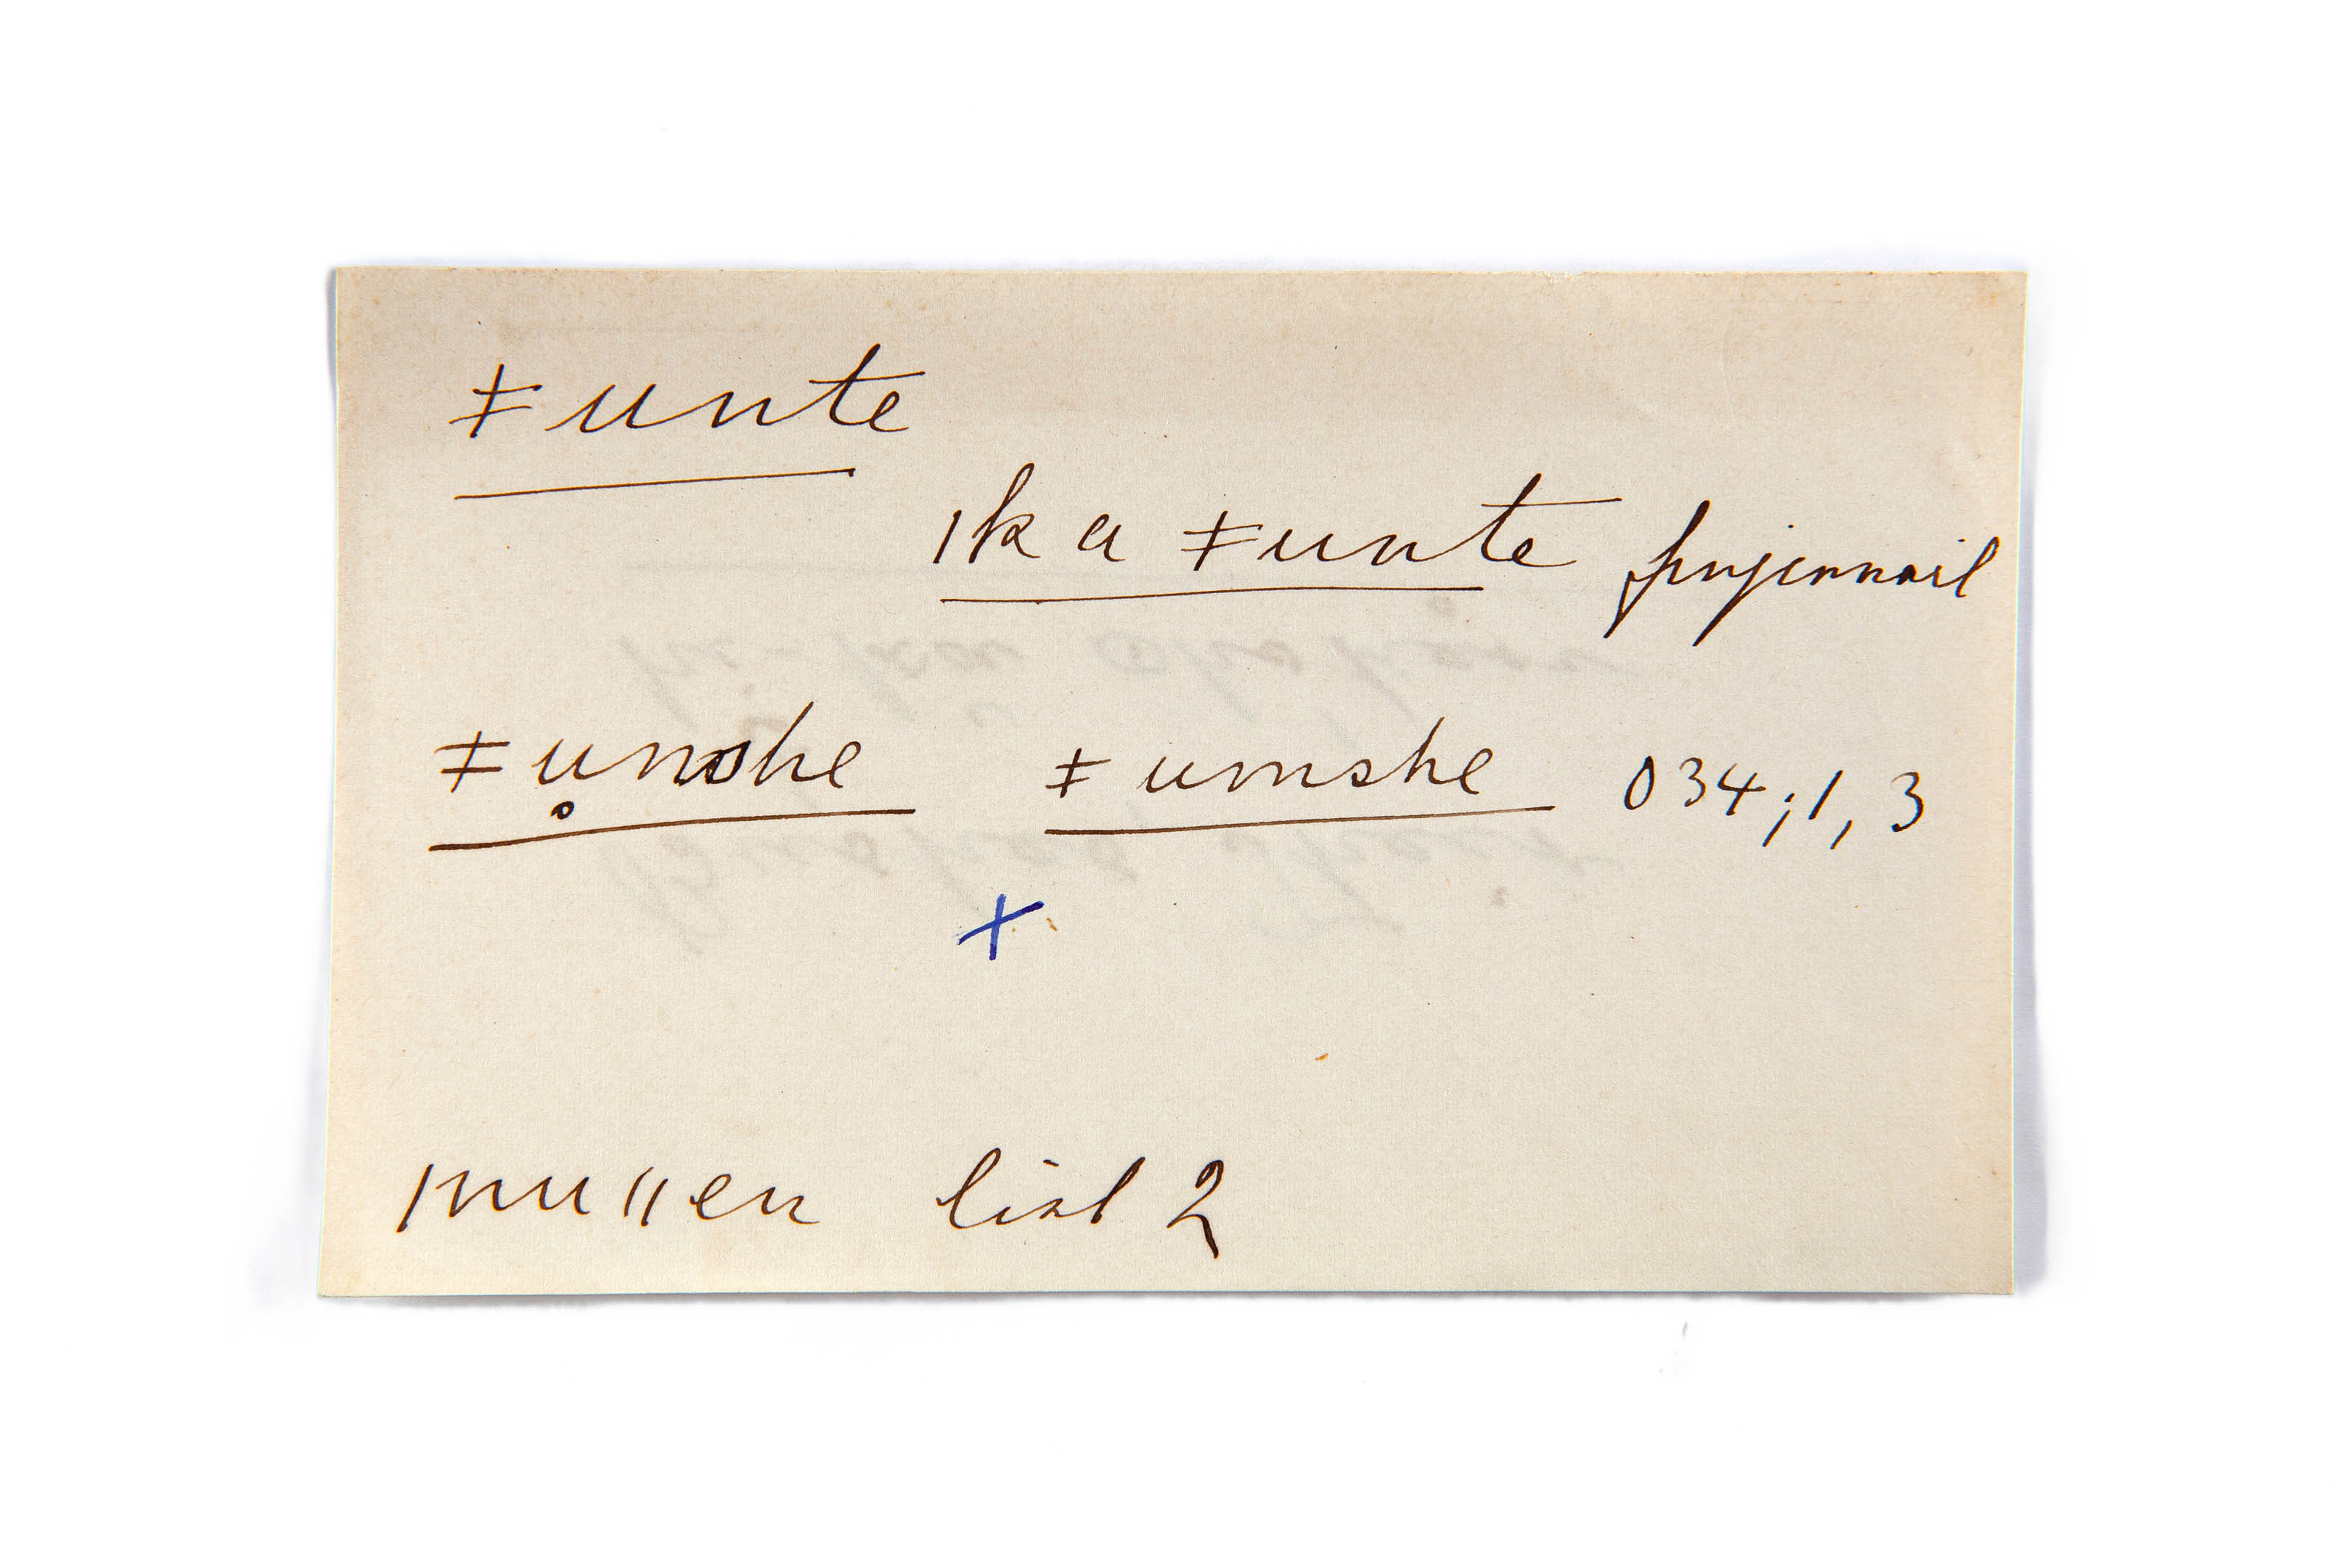 ǂunte
ǀka ǂunte fingernail
ǂu̥mshe ǂumshe 034; 1, 3
+
ǀnuǁen list 2